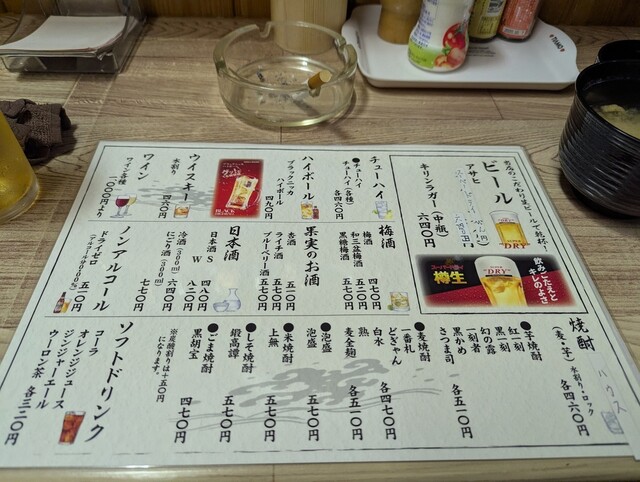 ビール
名店のこだわり生ビールで乾杯!
アサヒ
キリンラガー(中瓶)
六四〇円
SUPER "DRY"
スーパードライ
樽生
"DRY"
飲みごたえと
キレのよさ
チューハイ
●チューハイ
チューハイ(各種)
各四六〇円
ハイボール
ブラックニッカ
四九〇円
BLACK
ウイスキー
水割り
ワイン
ワイン各種
一〇〇〇円より
梅酒
梅酒
四七〇円
和三盆梅酒
五二〇円
黒糖梅酒
五七〇円
果実のお酒
杏酒
五一〇円
ライチ酒
五七〇円
ブルーベリー酒
五七〇円
日本酒
日本酒 S
四八〇円
W
八二〇円
にごり酒(300ml)
六四〇円
冷酒(300ml)
七七〇円
ノンアルコール
ドライゼロ
(アルコール0.00%)
五一〇円
焼酎
(麦・芋)
水割り・ロック
各四六〇円
ハウス
●芋焼酎
紅一刻
黒一刻
幻の露
一刻者
黒かめ
さつま司
各五一〇円
●麦焼酎
一番札
どぎゃん
白水
各四七〇円
熟
麦全麹
各五一〇円
●泡盛
泡盛
五七〇円
●米焼酎
上無
五七〇円
●しそ焼酎
鍛高譚
五七〇円
●ごま焼酎
黒胡宝
四七〇円
※炭酸割りは+五〇円
になります。
ソフトドリンク
コーラ
オレンジジュース
ジンジャーエール
ウーロン茶
各三三〇円